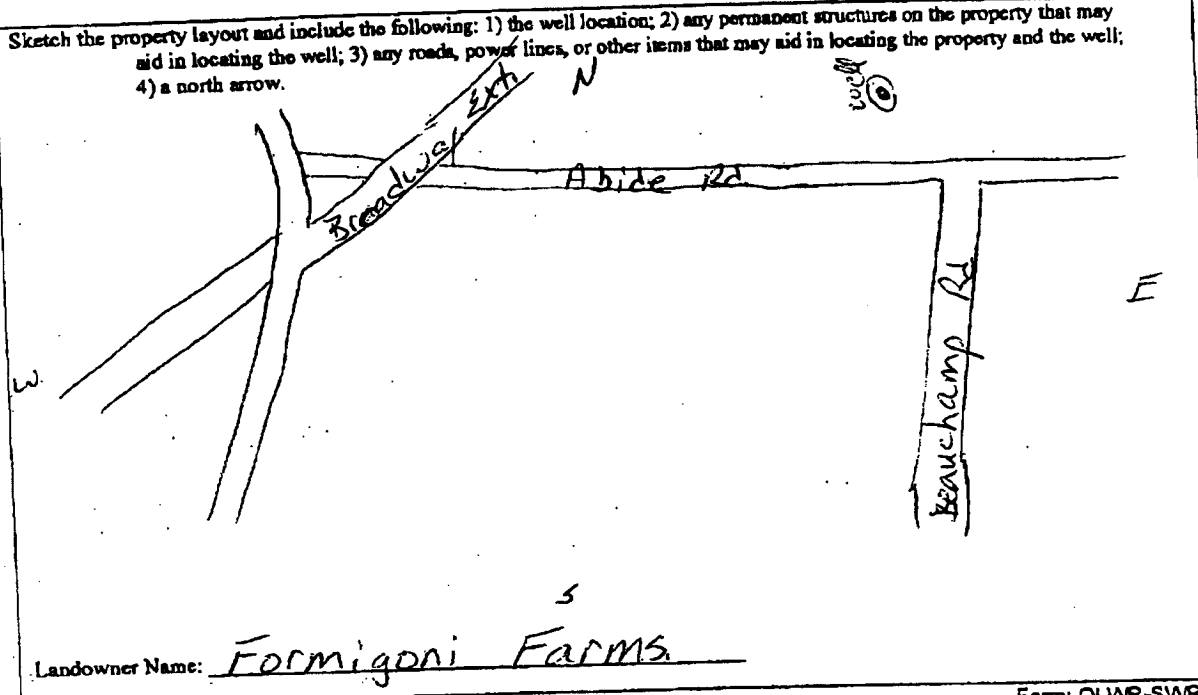 Sketch the property layout and include the following: 1) the well location; 2) any permanent structures on the property that may
aid in locating the well; 3) any roads, power lines, or other items that may aid in locating the property and the well;
4) a north arrow.
N
well
Broadway Ext.
Abide Rd
E
Beauchamp Rd
W.
S
Landowner Name: Formigoni Farms.
Form: OLWR-SWF